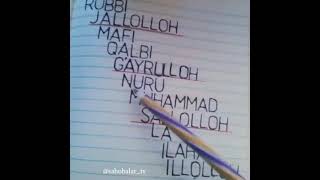 ROBBI
JALLOLLOH
MAFI
QALBI
GAYRULLOH
NURU
MUHAMMAD
SALLOLLOH
LA
ILAHA
ILLOLLOH
@sahobalar_tv